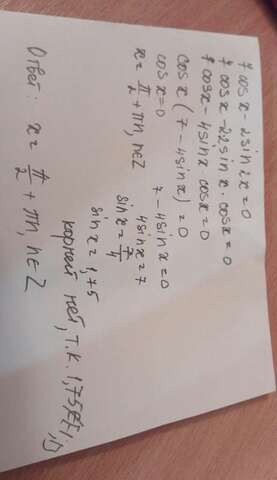 7cosx - 2sin2x = 0
7cosx - 2·2sinx·cosx = 0
7cosx - 4sinx cosx = 0
cosx (7 - 4sinx) = 0
cosx = 0
x = π/2 + πn, n∈Z
7 - 4sinx = 0
4sinx = 7
sinx = 7/4
sinx = 1,75
корней нет, т.к. 1,75∉[-1;1]
Ответ: x = π/2 + πn, n∈Z